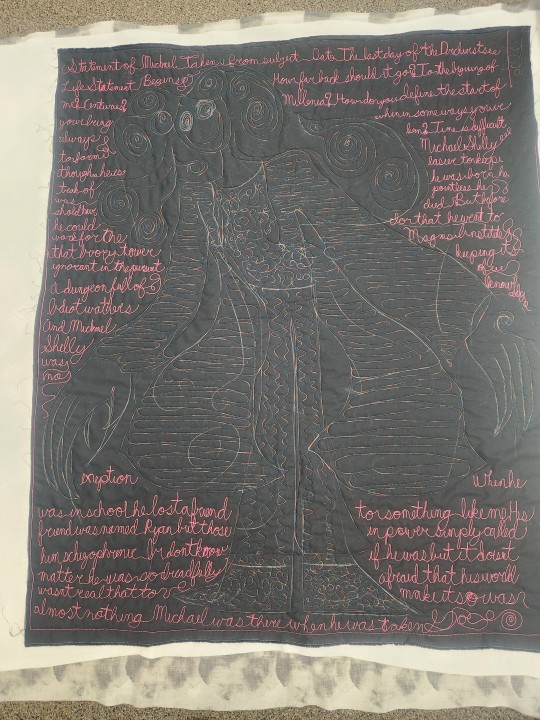 Statement of Michael Taken from subject Date The last day of the
Life Statement Begins How far back should it go? To the begining of
me? Centuries? Millenia? How do you define the start of
your being when in some ways your
always been? Time is difficult
for me Michael Shelly
though he is easier to keep
track of he was born he
was pointless he
should have died But before
he could don that he went to
work for the Magnus institute
that Ivory tower keeping it
ignorant in the pursuit of
a dungeon full of knowledge
Idiot watchers
And Michael
Shelly
was
no
exeption When he
was in school he lost a friend to something like me His
friend was named Ryan but those in power simply called
him schizophrenic I dont know if he was but it doesnt
matter he was so dreadfully afraid that his world
wasnt real that to make it so was
almost nothing Michael was there when he was taken